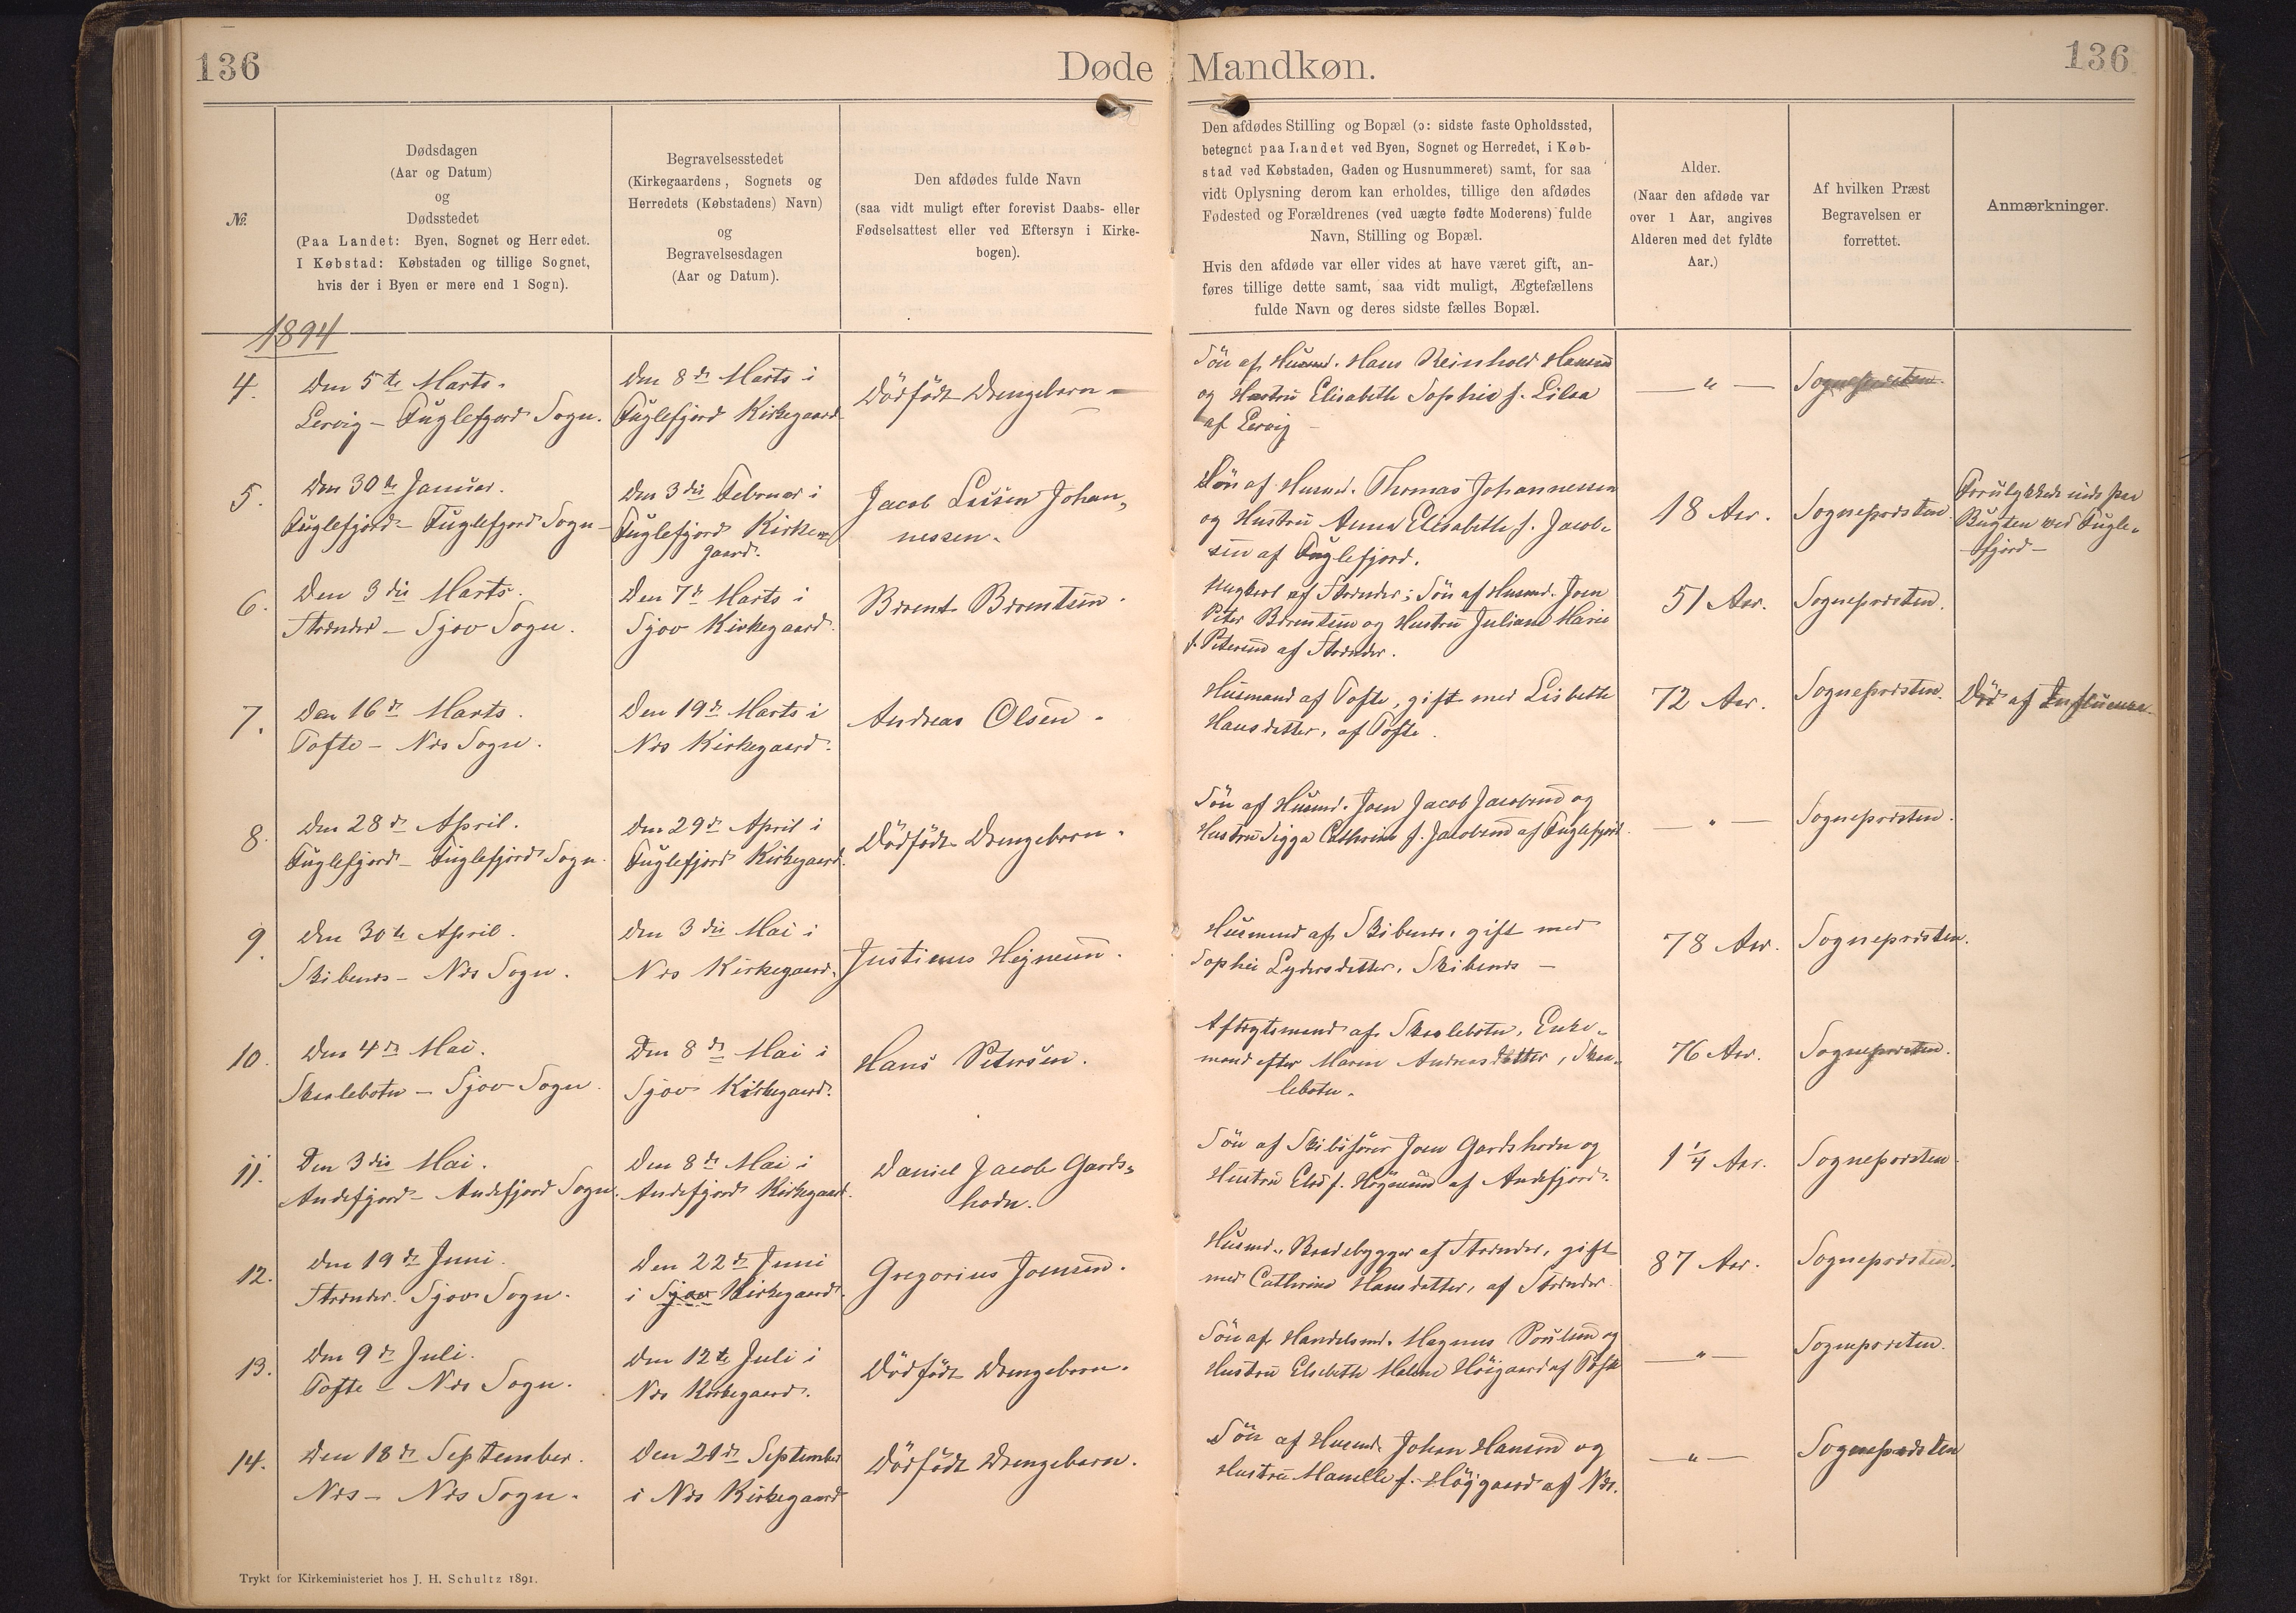 136
Døde Mandkøn.
136
№.
Dødsdagen
(Aar og Datum)
og
Dødsstedet
(Paa Landet: Byen, Sognet og Herredet.
I Købstad: Købstaden og tillige Sognet,
hvis der i Byen er mere end 1 Sogn).
Begravelsesstedet
(Kirkegaardens, Sognets og
Herredets (Købstadens) Navn)
og
Begravelsesdagen
(Aar og Datum).
Den afdødes fulde Navn
(saa vidt muligt efter forevist Daabs- eller
Fødselsattest eller ved Eftersyn i Kirke-
bogen).
Den afdødes Stilling og Bopæl (ɔ: sidste faste Opholdssted,
betegnet paa Landet ved Byen, Sognet og Herredet, i Køb-
stad ved Købstaden, Gaden og Husnummeret) samt, for saa
vidt Oplysning derom kan erholdes, tillige den afdødes
Fødested og Forældrenes (ved uægte fødte Moderens) fulde
Navn, Stilling og Bopæl.
Hvis den afdøde var eller vides at have været gift, an-
føres tillige dette samt, saa vidt muligt, Ægtefællens
fulde Navn og deres sidste fælles Bopæl.
Alder.
(Naar den afdøde var
over 1 Aar, angives
Alderen med det fyldte
Aar.)
Af hvilken Præst
Begravelsen er
forrettet.
Anmærkninger.
1894
4.
Den 5te Marts.
Lervig – Fuglefjord Sogn.
Den 8de Marts i
Fuglefjord Kirkegaard
Dödfödt Drengebarn –
Sön af Husmd. Hans Reinhold Hansen
og Hustru Elisabeth Sophie f. Lilaa
af Lervig –
— " —
Sognepræsten.
5.
Den 30te Januar.
Fuglefjord – Fuglefjord Sogn –
Den 3die Februar i
Fuglefjord Kirke=
gaard.
Jacob Johan=
nessen.
Sön af Husmd. Thomas Johannessen
og Hustru Anna Elisabeth f. Jacob=
sen af Fuglefjord.
18 Aar.
Sognepræsten.
Forulykkede inde paa
Bugten ved Fugle=
fjord –
6.
Den 3die Marts.
Strænder – Sjov Sogn.
Den 7de Marts i
Sjov Kirkegaard.
Berent Berentsen.
Ungkarl af Strænder; Sön af Husmd. Joen
Peter Berentsen og Hustru Juliane Marie
f. Petersen af Strænder.
51 Aar.
Sognepræsten.
7.
Den 16de Marts.
Tofte – Næs Sogn.
Den 19de Marts i
Næs Kirkegaard.
Andreas Olsen.
Husmand af Tofte, gift med Lisbeth
Hansdatter, af Tofte.
72 Aar.
Sognepræsten.
Död af Influenza.
8.
Den 28de April.
Fuglefjord – Fuglefjord Sogn.
Den 29de April i
Fuglefjord Kirkegaard.
Dödfödt Drengebarn.
Sön af Husmd. Joen Jacob Jacobsen og
Hustru Sigga Cathrine f. Jacobsen af Fuglefjord.
— " —
Sognepræsten.
9.
Den 30te April.
Skibenæs – Næs Sogn.
Den 3die Mai i
Næs Kirkegaard.
Justinus Hejnesen.
Husmand af Skibenæs, gift med
Sophie Lydersdatter, Skibenæs –
78 Aar.
Sognepræsten.
10.
Den 4de Mai.
Skaalebotn – Sjov Sogn.
Den 8de Mai i
Sjov Kirkegaard.
Hans Petersen.
Aftægtsmand af Skaalebotn, Enke=
mand efter Maren Andreasdatter, Skaa=
lebotn.
76 Aar.
Sognepræsten.
11.
Den 3die Mai.
Andefjord – Andefjord Sogn.
Den 8de Mai i
Andefjord Kirkegaard.
Daniel Jacob Gards=
hodn.
Sön af Skibsförer Joen Gardshodn og
Hustru Else f. Högnesen af Andefjord.
1 1/4 Aar.
Sognepræsten.
12.
Den 19de Juni.
Strænder. Sjov Sogn.
Den 22de Juni
i Sjov Kirkegaard.
Gregorius Joensen.
Husmd., Baadebygger af Strænder, gift
med Cathrine Hansdatter, af Strænder.
87 Aar.
Sognepræsten.
13.
Den 9de Juli.
Tofte – Næs Sogn.
Den 12te Juli i
Næs Kirkegaard.
Dödfödt Drengebarn.
Sön af Handelsmd. Magnus Poulsen og
Hustru Elsebeth Malene Höigaard af Tofte
— " —
Sognepræsten.
14.
Den 18de September.
Næs – Næs Sogn.
Den 21de September
i Næs Kirkegaard
Dödfödt Drengebarn.
Sön af Husmd. Johan Hansen og
Hustru f. Höjgaard af Næs.
— " —
Sognepræsten
Trykt for Kirkeministeriet hos J. H. Schultz 1891.